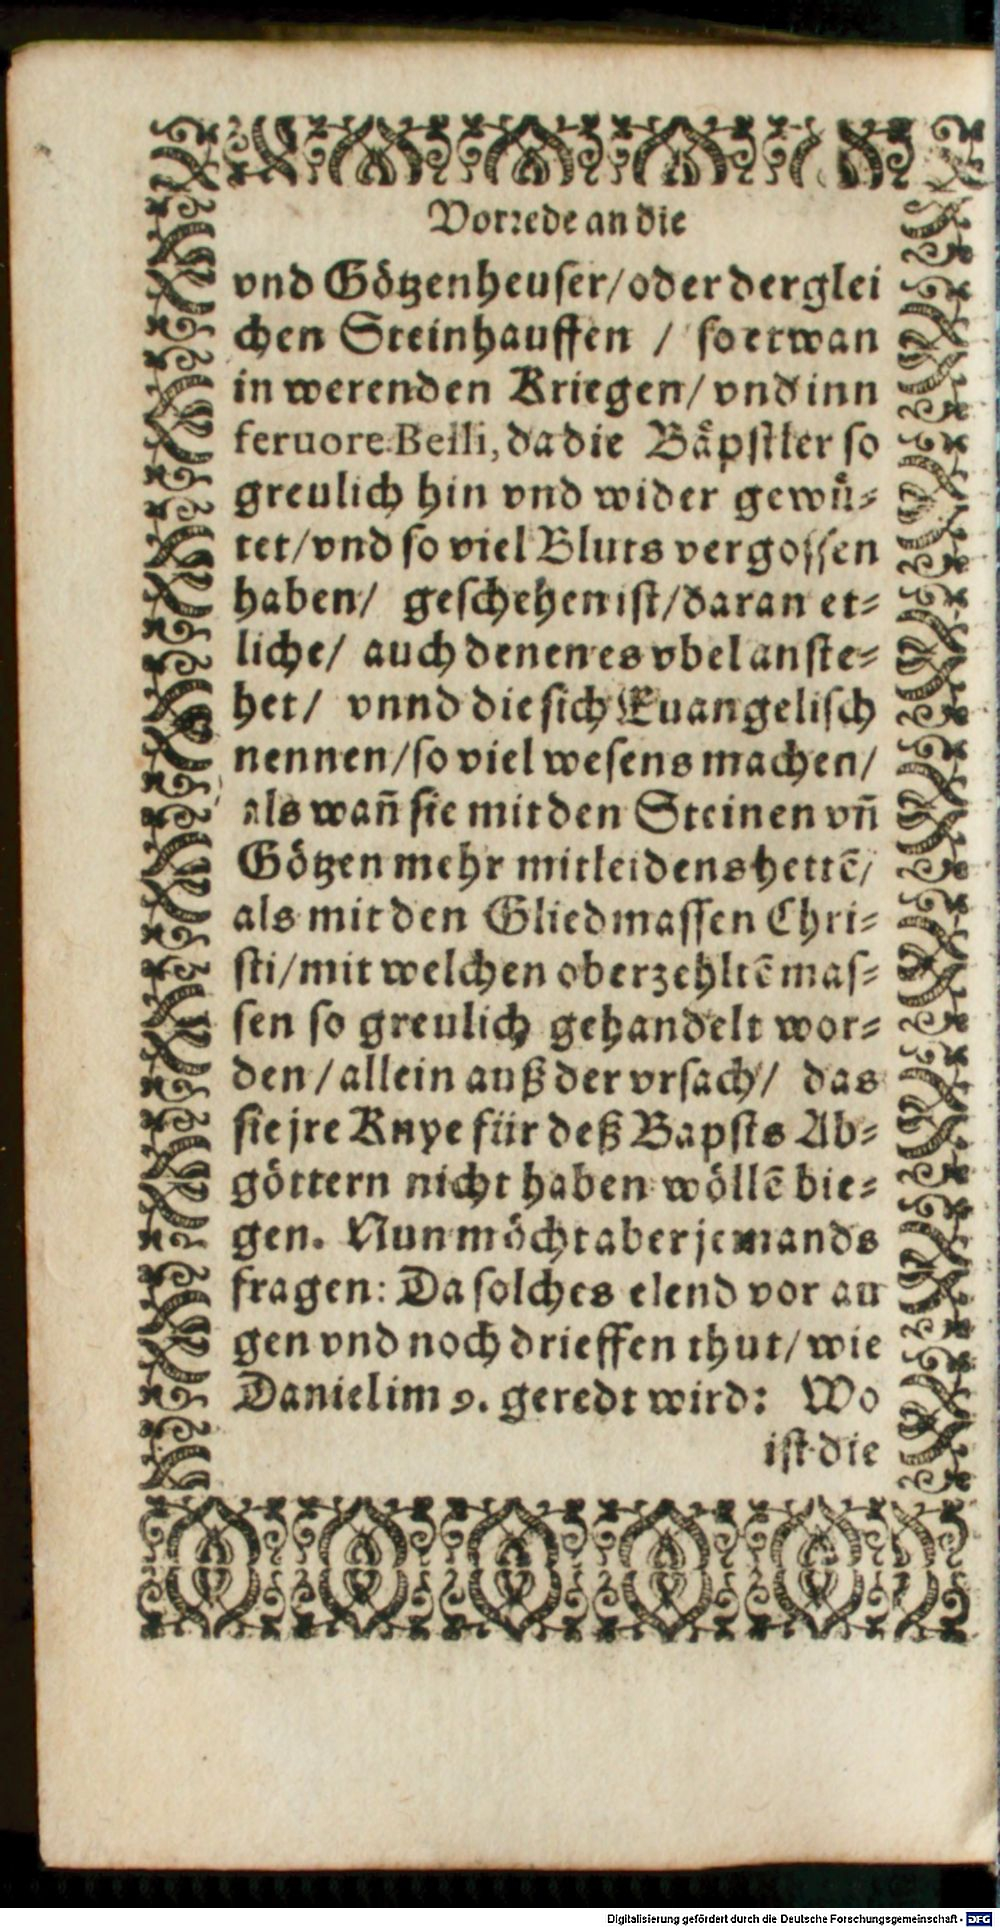 Vorrede an die
vnd Götzenheuser/ oder derglei
chen Steinhauffen / so etwan
in werenden Kriegen/ vnd inn
feruore Belli, da die Bäpstler so
greulich hin vnd wider gewü-
tet/ vnd so viel Bluts vergossen
haben/ geschehen ist/ daran et-
liche/ auch denen es vbel anste-
het/ vnnd die sich Euangelisch
nennen/ so viel wesens machen/
als wañ sie mit den Steinen vñ
Götzen mehr mitleidens hettē/
als mit den Gliedmassen Chri-
sti/ mit welchen oberzehltē mas-
sen so greulich gehandelt wor-
den/ allein auß der vrsach/ das
sie jre Knye für deß Bapsts Ab-
göttern nicht haben wöllē bie-
gen. Nun möcht aber jemands
fragen: Da solches elend vor au
gen vnd noch drieffen thut/ wie
Daniel im 9. geredt wird: Wo
ist die
Digitalisierung gefördert durch die Deutsche Forschungsgemeinschaft - DFG